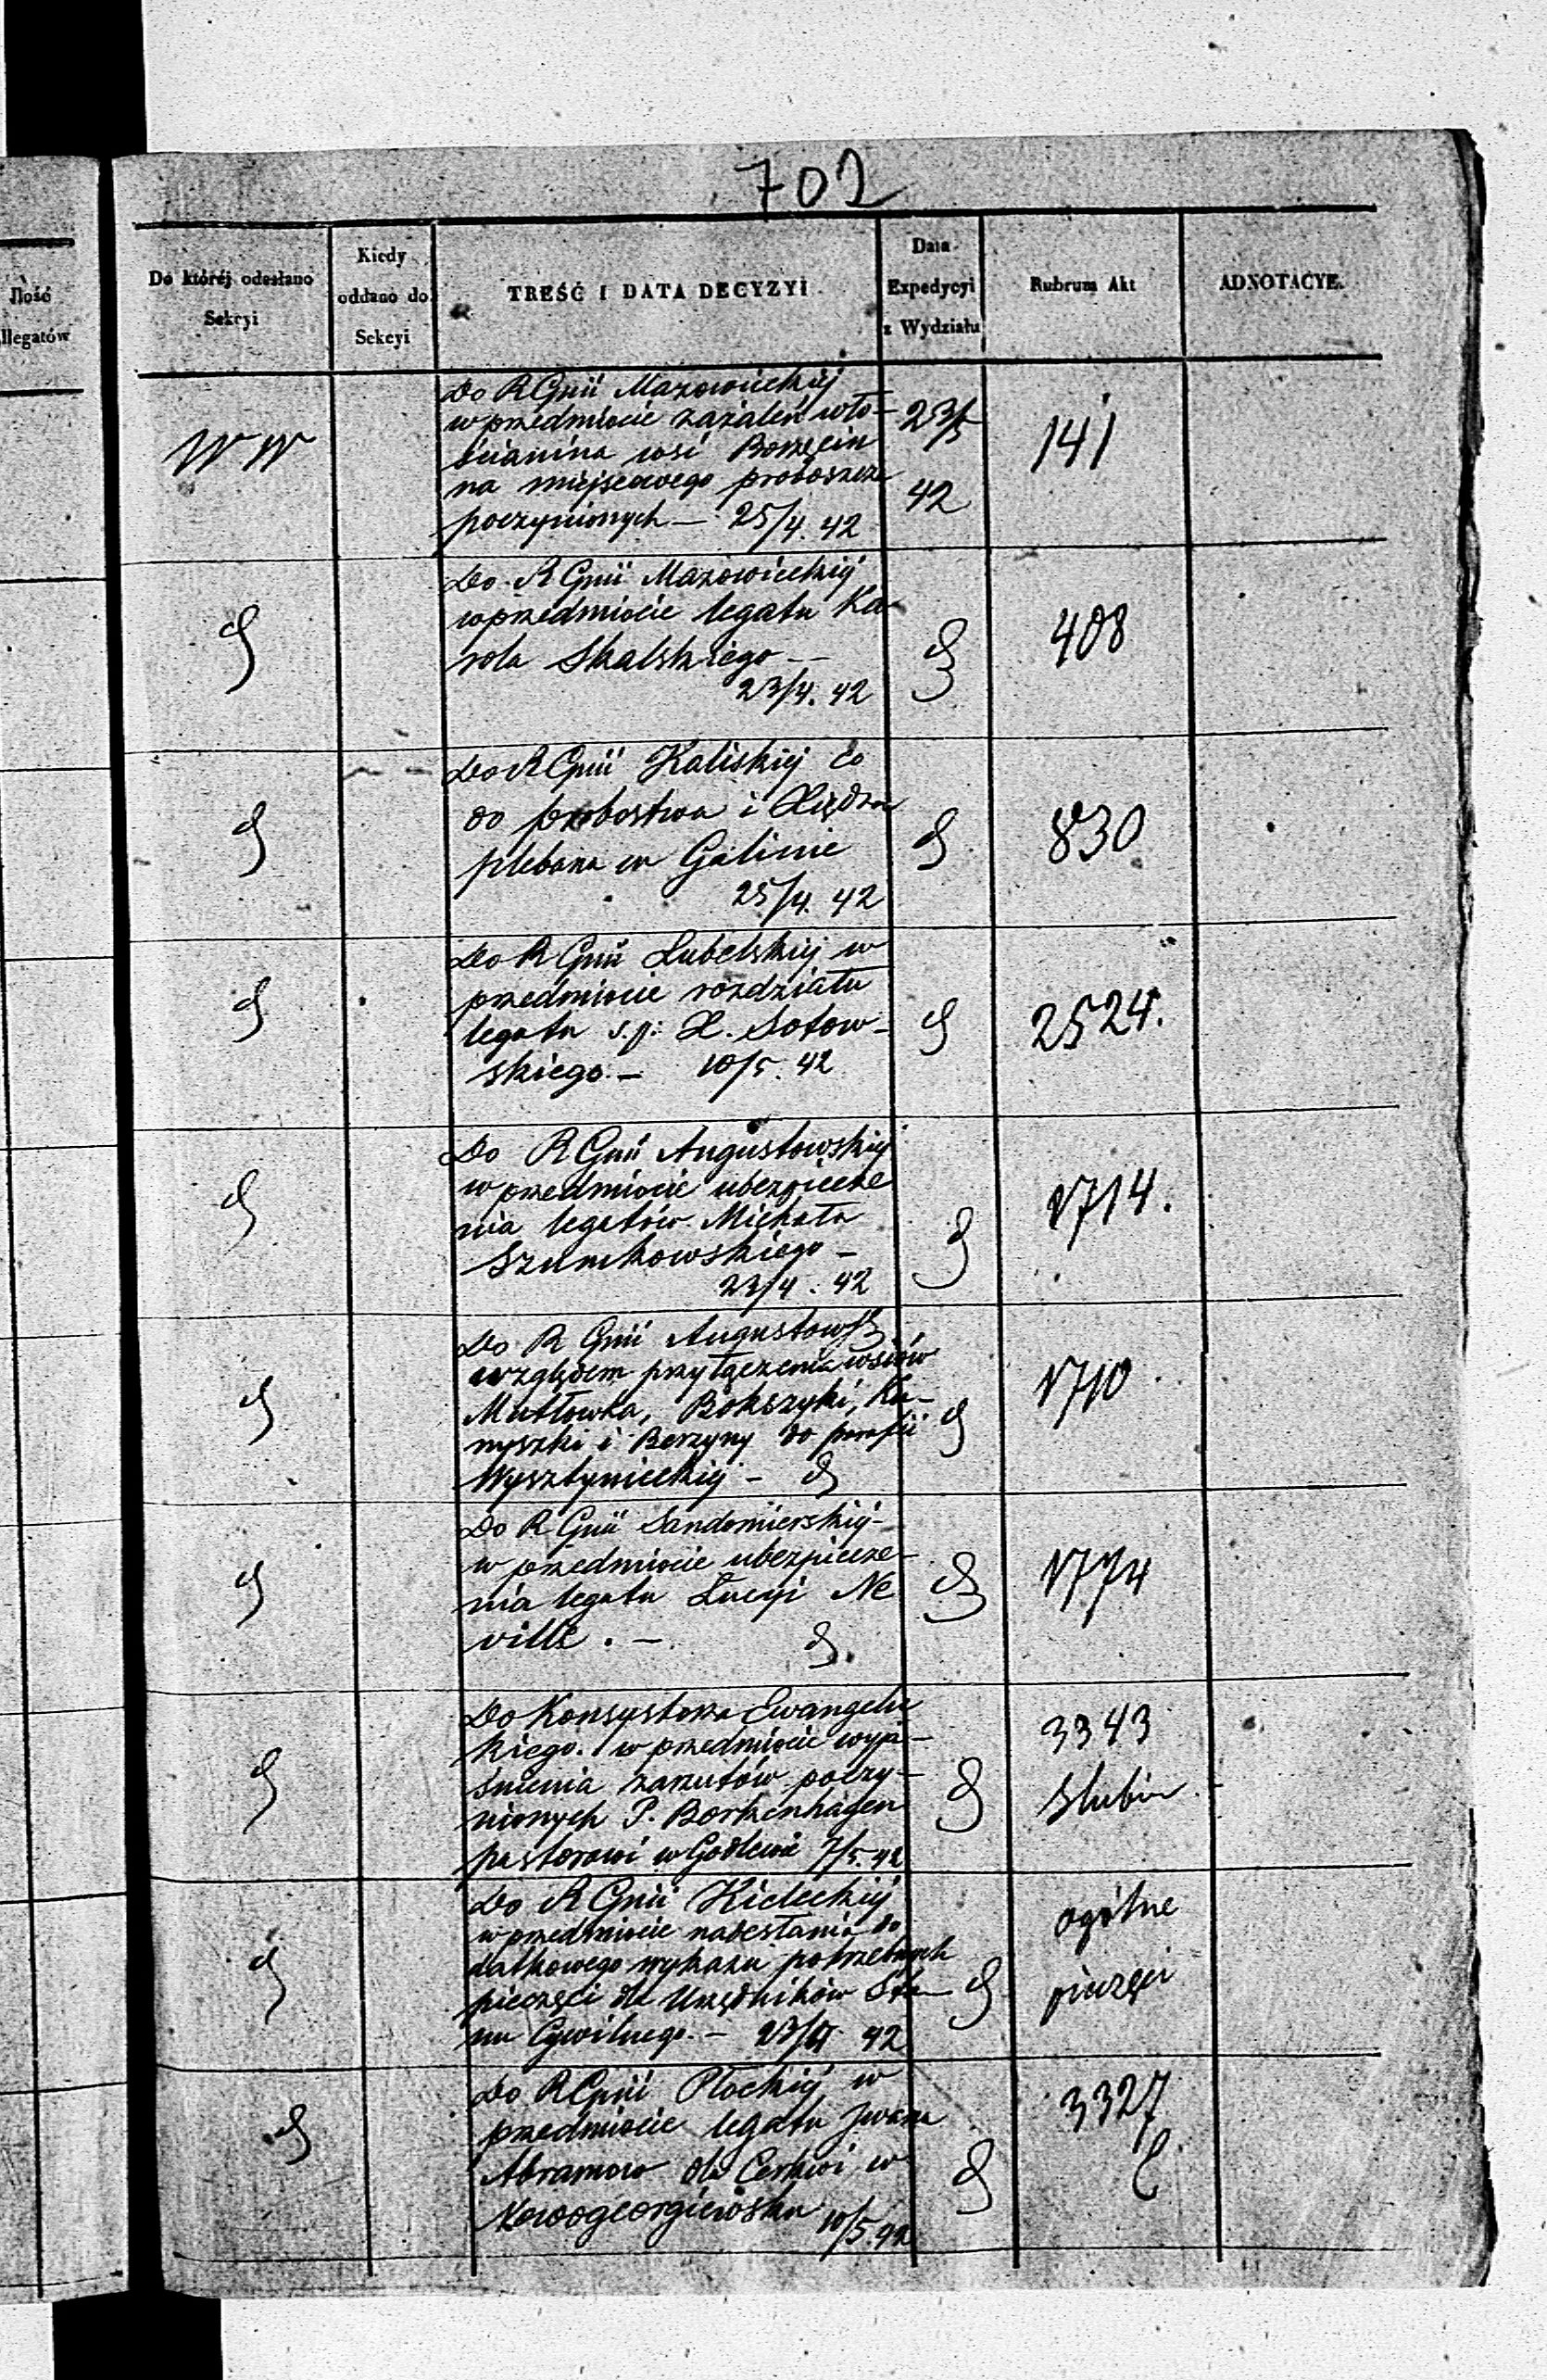 702
Ilość
llegatów
Do któréj odesłano
Sekcyi
Kiedy
oddano do
Sekcyi
TREŚĆ I DATA DECYZYI
Data
Expedycyi
z Wydziału
Rubrum Akt
ADNOTACYE.
WW
Do RGnii Mazowieckiéj
w przedmiocie zażaleń wło-
ścianina wsi Borzęcin
na miejscowego proboszcza
poczynionych — 25/4. 42
23/5
42
141
Do R Gnii Mazowieckiéj
w przedmiocie legatu Ka
rola Skalskiego —
23/4. 42
408
Do R Gnii Kaliskiéj co
do probostwa i Xiędza
plebana w Galinie
25/4. 42
830
Do R Gnii Lubelskiéj w
przedmiocie rozdziału
legatu s.p: X. Sotow-
skiego. — 10/5. 42
2524.
Do R Gnii Augustowskiéj
w przedmiocie ubezpiecze
nia legatów Michała
Szumkowskiego —
23/4. 42
1714.
Do R Gnii Augustowsk
względem przyłączenia wsiów
Mutłowka, Bokszyki, Ka-
nyszki i Berzyny do parafii
Wysztynieckiéj —
1710
Do R Gnii Sandomierskiéj
w przedmiocie ubezpiecze-
nia legatu Łucyi Ne
ville. —
1774
Do Konsystorza Ewangelic
kiego. w przedmiocie wyja-
śnienia zarzutów poczy-
nionych P. Borkenhagen
pastorowi w Godlewie 7/5. 42
3343
Slubów
Do R Gnii Kieleckiéj
w przedmiocie nadesłania do
datkowego wykazu potrzebnych
pieczęci dla Urzędników Sta-
nu Cywilnego. — 23/4 42
ogólne
pieczęci
Do R Gnii Płockiéj w
przedmiocie legatu Jwana
Abramow dla Cerkwi w
Nowogeorgiewsku 10/5. 42
3327